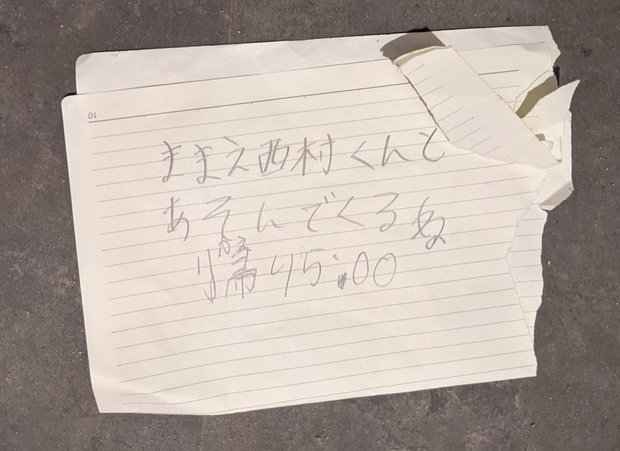 01
ままえ西村くんと
あそんでくるね
かえ
帰り5:00